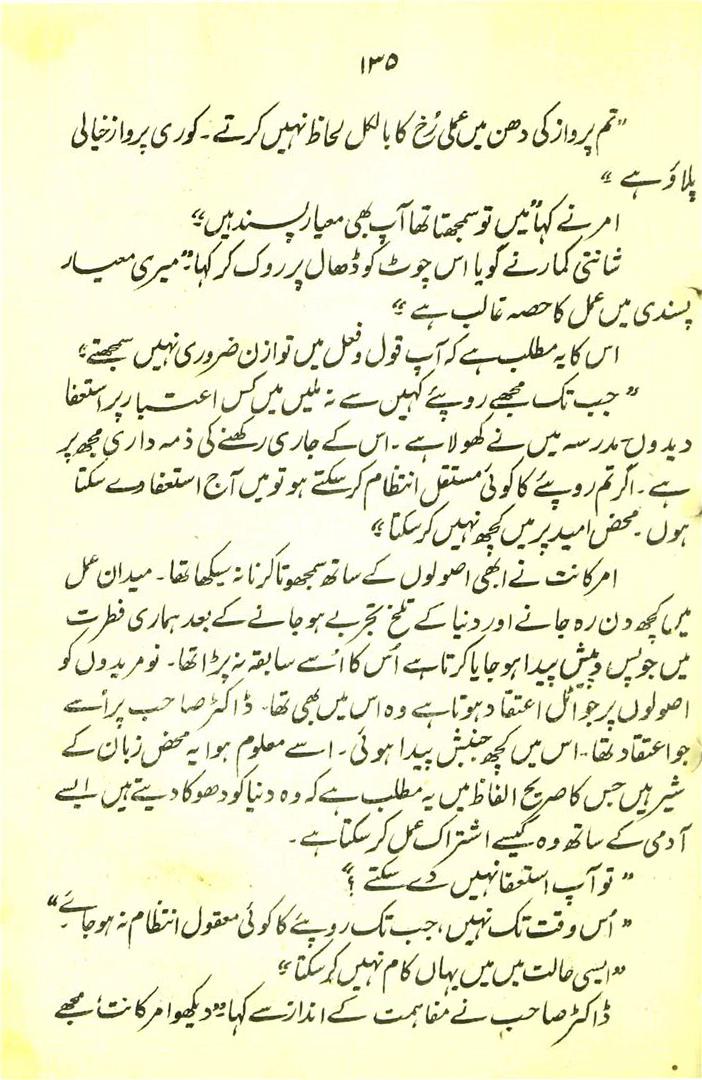 ۱۳۵
"تم پرواز کی دھن میں عملی رُخ کا بالکل لحاظ نہیں کرتے۔ کوری پرواز خیالی
پلاؤ ہے"
امر نے کہا "میں تو سمجھتا تھا آپ بھی معیار پسند ہیں"
شانتی کمار نے گویا اس چوٹ کو ڈھال پر روک کر کہا۔ "میری معیار
پسندی میں عمل کا حصہ غالب ہے"
اس کا یہ مطلب ہے کہ آپ قول و فعل میں توازن ضروری نہیں سمجھتے"
"جب تک مجھے روپئے کہیں سے نہ ملیں میں کس اعتبار پر استعفا
دیدوں۔ مدرسہ میں نے کھولا ہے۔ اس کے جاری رکھنے کی ذمہ داری مجھ پر
ہے۔ اگر تم روپئے کا کوئی مستقل انتظام کر سکتے ہو تو میں آج استعفا دے سکتا
ہوں۔ محض امید پر میں کچھ نہیں کر سکتا"
امر کانت نے ابھی اصولوں کے ساتھ سمجھوتا کرنا نہ سیکھا تھا۔ میدان عمل
میں کچھ دن رہ جانے اور دنیا کے تلخ تجربے ہو جانے کے بعد ہماری فطرت
میں جو پس و پیش پیدا ہو جایا کرتا ہے اُس کا اُسے سابقہ نہ پڑا تھا۔ نو مریدوں کو
اصولوں پر جو اٹل اعتقاد ہوتا ہے وہ اس میں بھی تھا۔ ڈاکٹر صاحب پر اُسے
جو اعتقاد تھا۔ اس میں کچھ جنبش پیدا ہوئی۔ اسے معلوم ہوا یہ محض زبان کے
شیر ہیں جس کا صریح الفاظ میں یہ مطلب ہے کہ وہ دنیا کو دھوکا دیتے ہیں ایسے
آدمی کے ساتھ وہ کیسے اشتراک عمل کر سکتا ہے۔
"تو آپ استعفا نہیں دے سکتے؟"
"اُس وقت تک نہیں، جب تک روپئے کا کوئی معقول انتظام نہ ہو جائے۔"
"ایسی حالت میں میں یہاں کام نہیں کر سکتا"
ڈاکٹر صاحب نے مفاہمت کے انداز سے کہا۔ "دیکھو امر کانت، مجھے